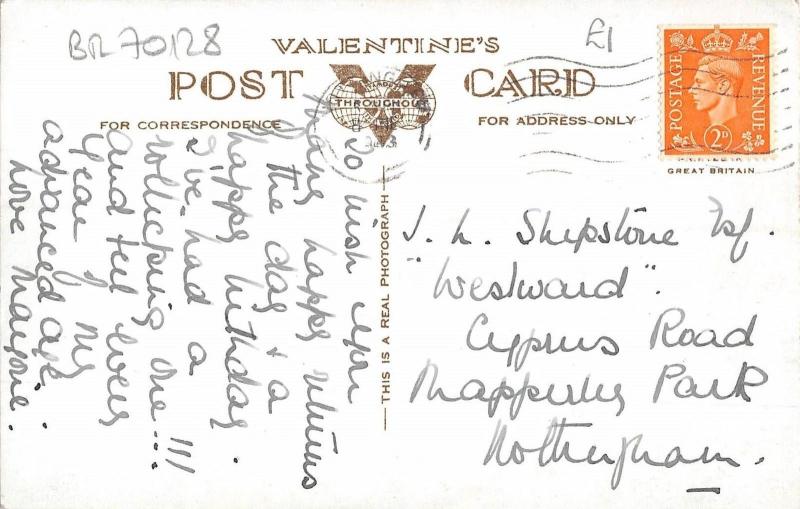 BR 70128
£1
VALENTINE'S
POST CARD
THROUGHOUT
FOR CORRESPONDENCE
FOR ADDRESS ONLY
POSTAGE
REVENUE
2D
GREAT BRITAIN
THIS IS A REAL PHOTOGRAPH
To wish you
many happy returns
of the day & a
happy birthday.
I've had a
rollicking one!!!
and feel every
year of my
advanced age
love Marjorie.
J. L. Shipstone Esq.
"Westward".
Cyprus Road
Mapperley Park
Nottingham.